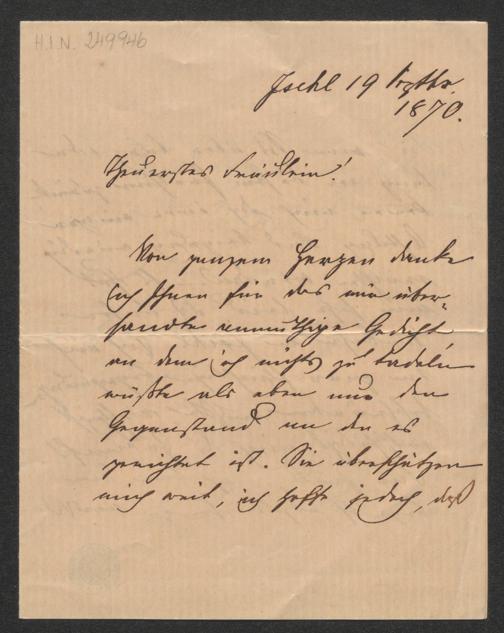 H.I.N. 249946
Ischl 19 Septbr.
1870.
Theuerstes Fräulein!
Von ganzem Herzen danke
ich Ihnen für das mir über-
sandte anmuthige Gedicht
an dem ich nichts zu tadeln
wüßte als eben nur den
Gegenstand an den es
gerichtet ist. Sie überschätzen
mich weit, ich hoffe jedoch, daß